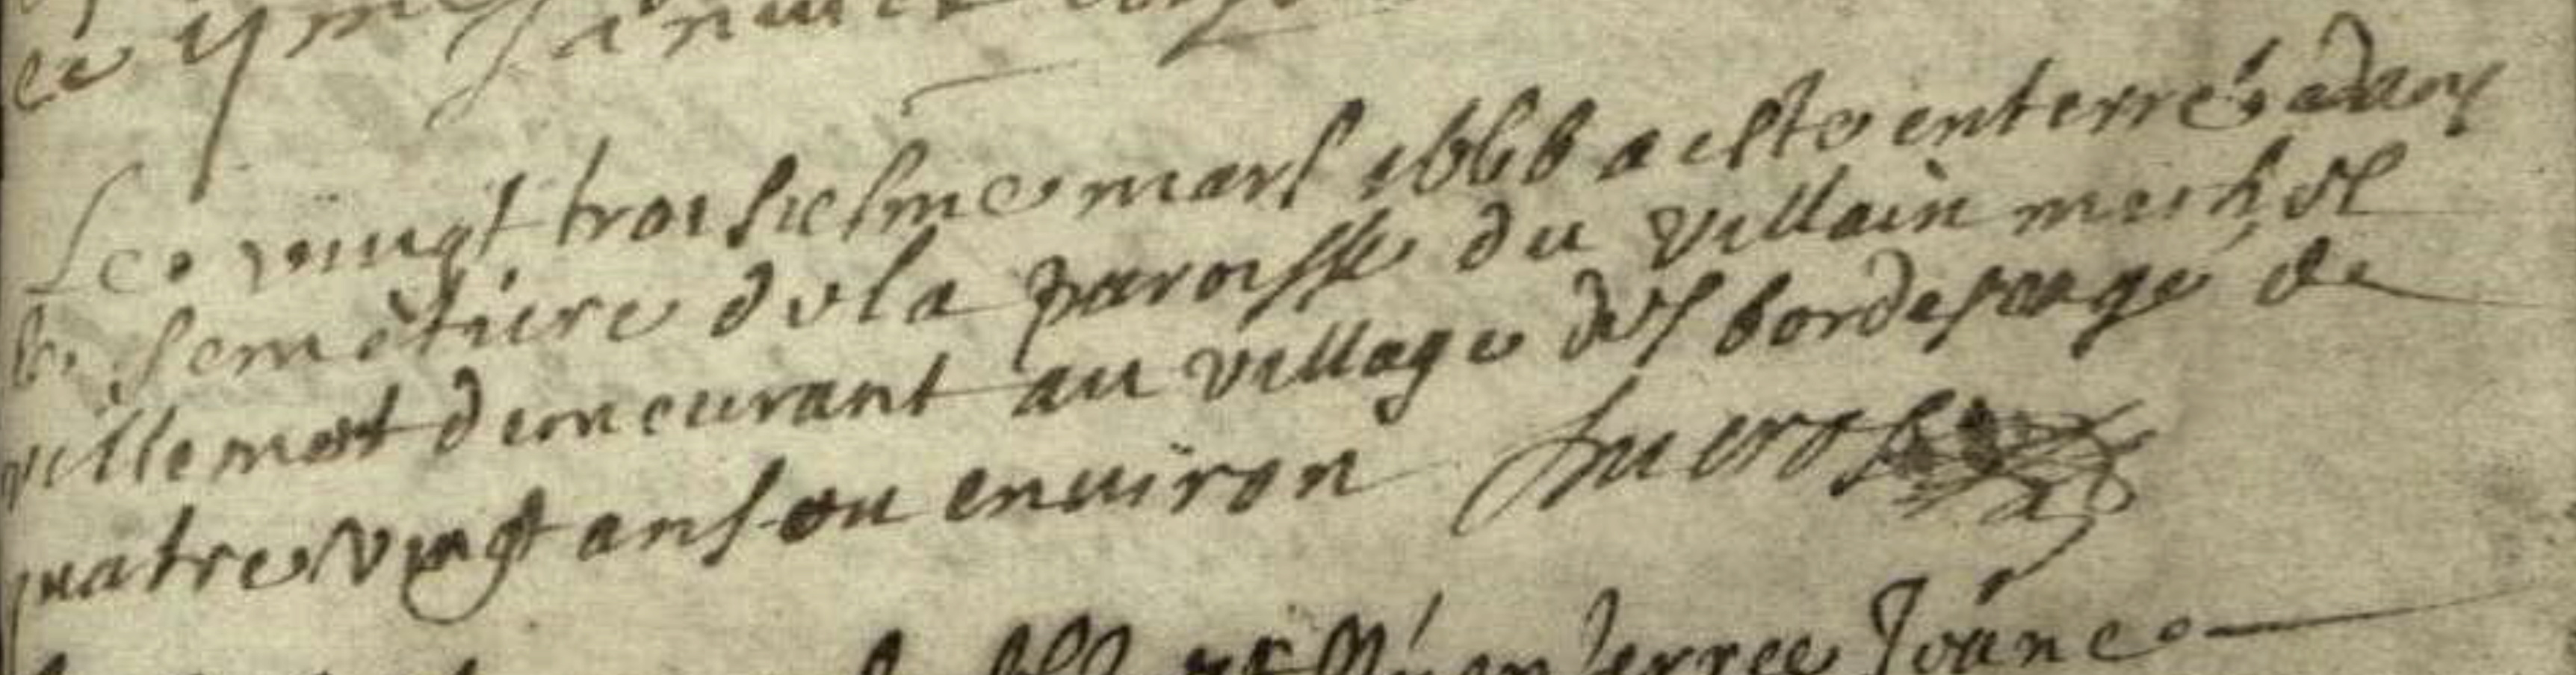 Ce
Le vingt troisiesme mars 1666 a esté enterré dans
le semêtiere de la paroisse du villain michel
villemot demeurant au village des bordes aagé de
quatre vingt ans ou enuiron
enterree